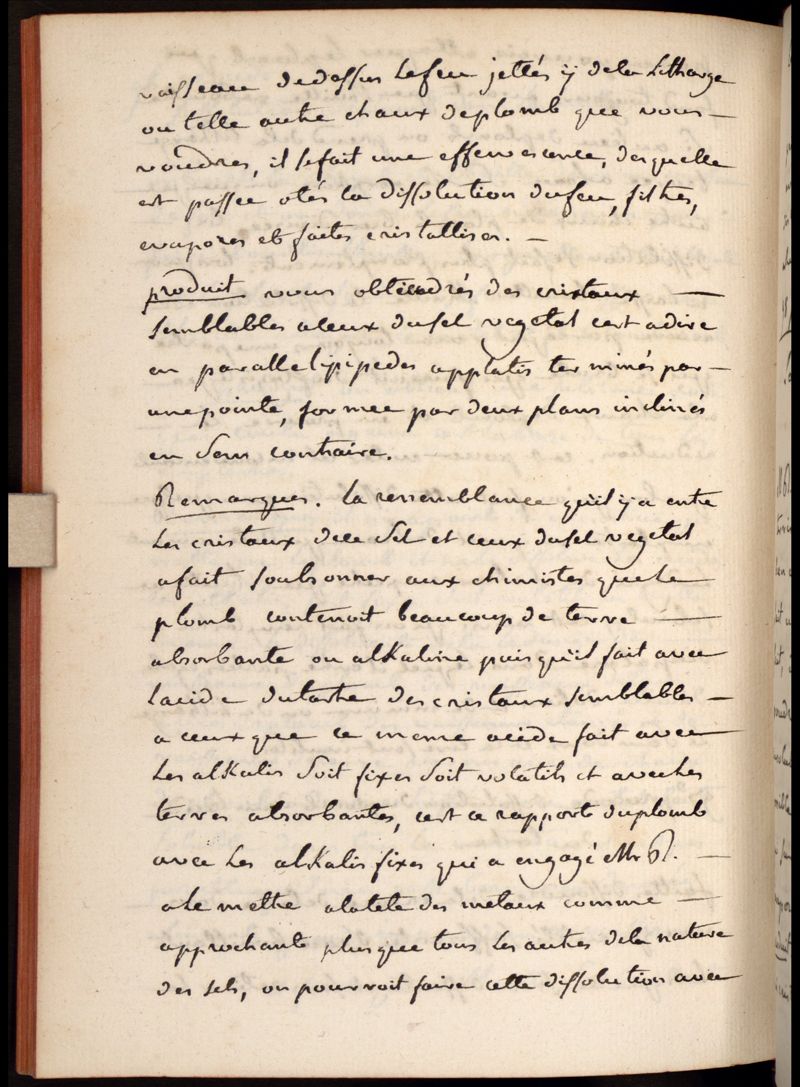 vaisseau dedessus lefeu jettés ij dela Litharge
ou telle autre chaux deplomb que vous —
voudres, il sefait une effervescence, desquelle
est passée otés la dissolution dufeu, filtres,
evapores et faites cristalliser. —
produit vous obtiendrés des cristaux —
semblables aceux dusel vegetal cest adire
en parallelipipedes applatis terminés par —
unepointe, formee par deux plans inclinés
en sens contraire.
Remarques. la ressemblance qu'il y a entre
les cristaux dece sel et ceux dusel vegetal
afait soubsonner aux chimistes quele
plomb contenoit beaucoup de terre —
absorbante ou alkaline puisqu'il fait avec
lacide dutartre des cristaux semblables —
a ceux que ce meme acide fait avec
les alkalis soit fixes soit volatils et avecles
terres absorbantes, cest ce rapport duplomb
avec les alkalis fixes qui a engagé Mr R. —
ale mettre alatete des metaux comme —
approchante plusque tous les autres dela nature
des sels, on pourroit faire cette dissolution avec